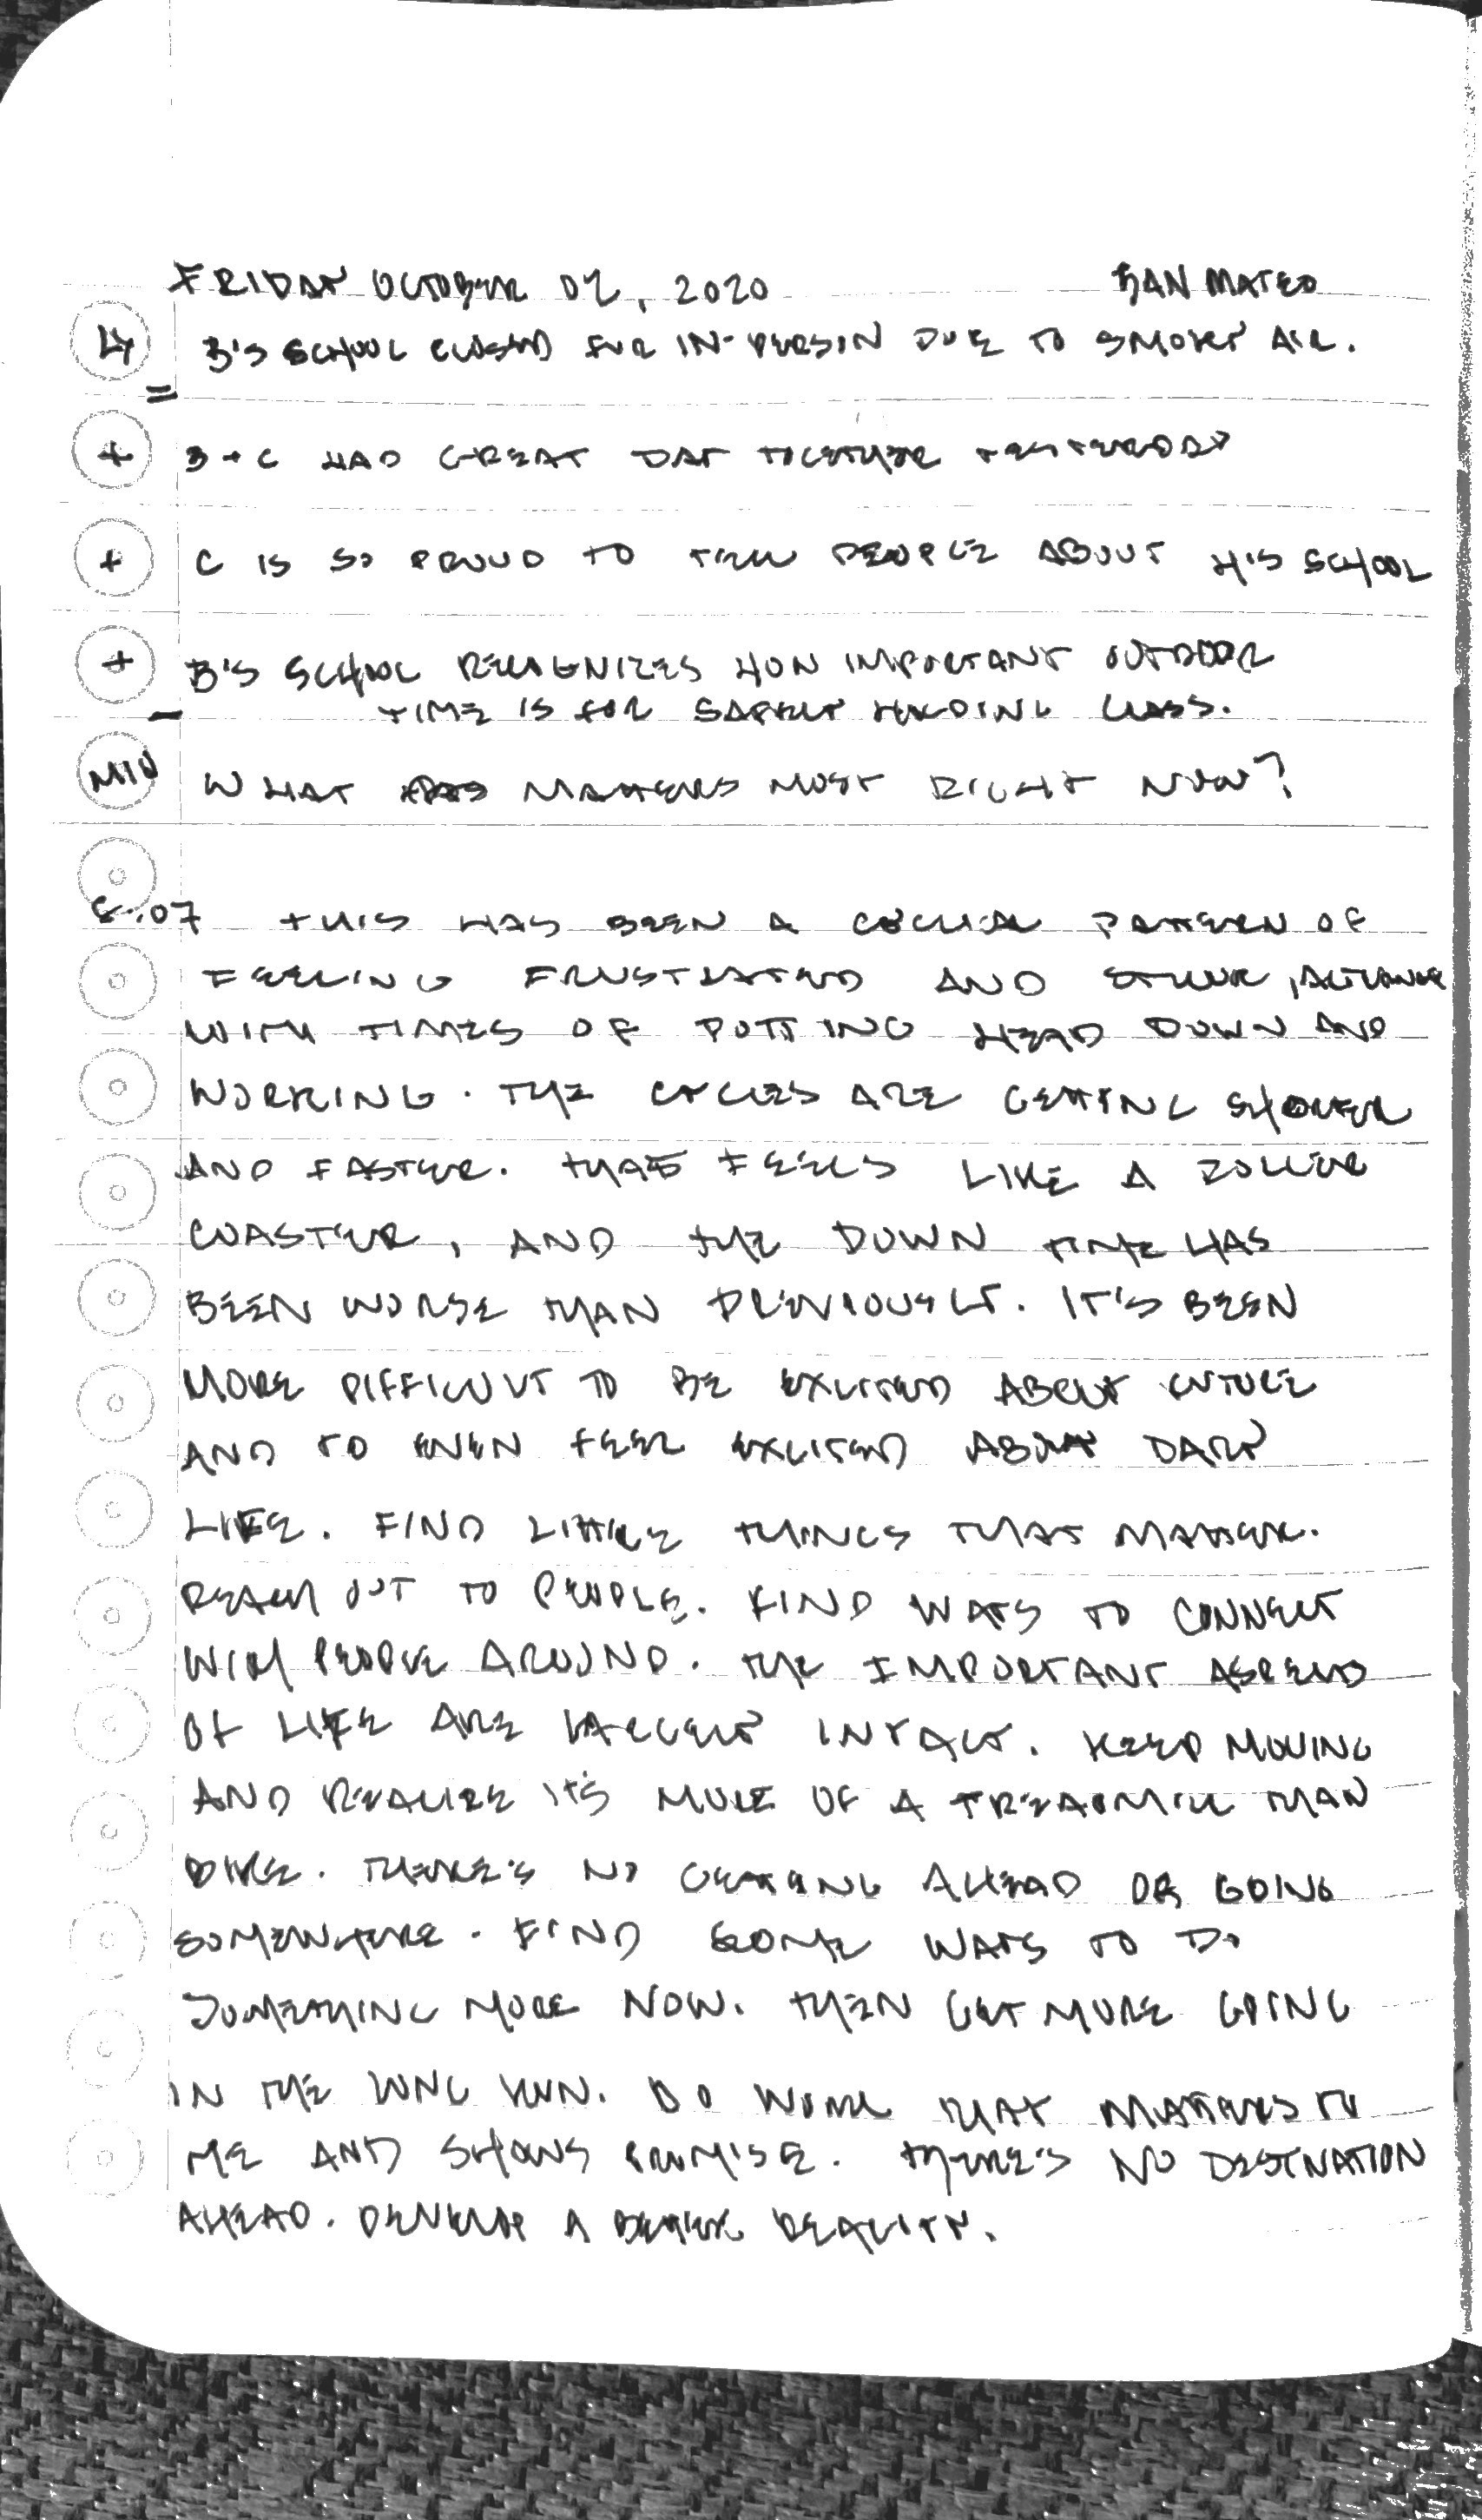 FRIDAY OCTOBER 02, 2020 SAN MATEO
4 B'S SCHOOL CLOSED FOR IN-PERSON DUE TO SMOKEY AIR.
=
+ B + C HAD GREAT DAY TOGETHER YESTERDAY
+ C IS SO PROUD TO TELL PEOPLE ABOUT HIS SCHOOL
+ B'S SCHOOL RECOGNIZES HOW IMPORTANT OUTDOOR
– TIME IS FOR SAFELY HOLDING CLASS.
MIO WHAT MATTERS MOST RIGHT NOW?
07 THIS HAS BEEN A CYCLICAL PATTERN OF
FEELING FRUSTRATED AND STUCK,
WITH TIMES OF PUTTING HEAD DOWN AND
WORKING. THE CYCLES ARE GETTING SHORTER
AND FASTER. THAT FEELS LIKE A ROLLER
COASTER, AND THE DOWN TIME HAS
BEEN WORSE THAN PREVIOUSLY. IT'S BEEN
MORE DIFFICULT TO BE EXCITED ABOUT FUTURE
AND TO EVEN FEEL EXCITED ABOUT DAILY
LIFE. FIND LITTLE THINGS THAT MATTER.
REACH OUT TO PEOPLE. FIND WAYS TO CONNECT
WITH PEOPLE AROUND. THE IMPORTANT ASPECTS
OF LIFE ARE LARGELY INTACT. KEEP MOVING
AND REALIZE IT'S MORE OF A TREADMILL THAN
BIKE. THERE'S NO GETTING AHEAD OR GOING
SOMEWHERE. FIND SOME WAYS TO DO
SOMETHING MORE NOW. THEN GET MORE GOING
IN THE LONG RUN. DO WORK THAT MATTERS TO
ME AND SHOWS PROMISE. THERE'S NO DESTINATION
AHEAD. DEVELOP A BETTER REALITY.